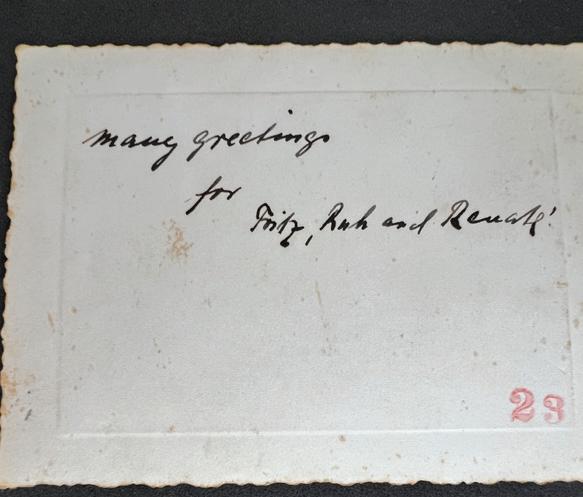 many greetings
for
Fritz, Ruh and Renate!
23